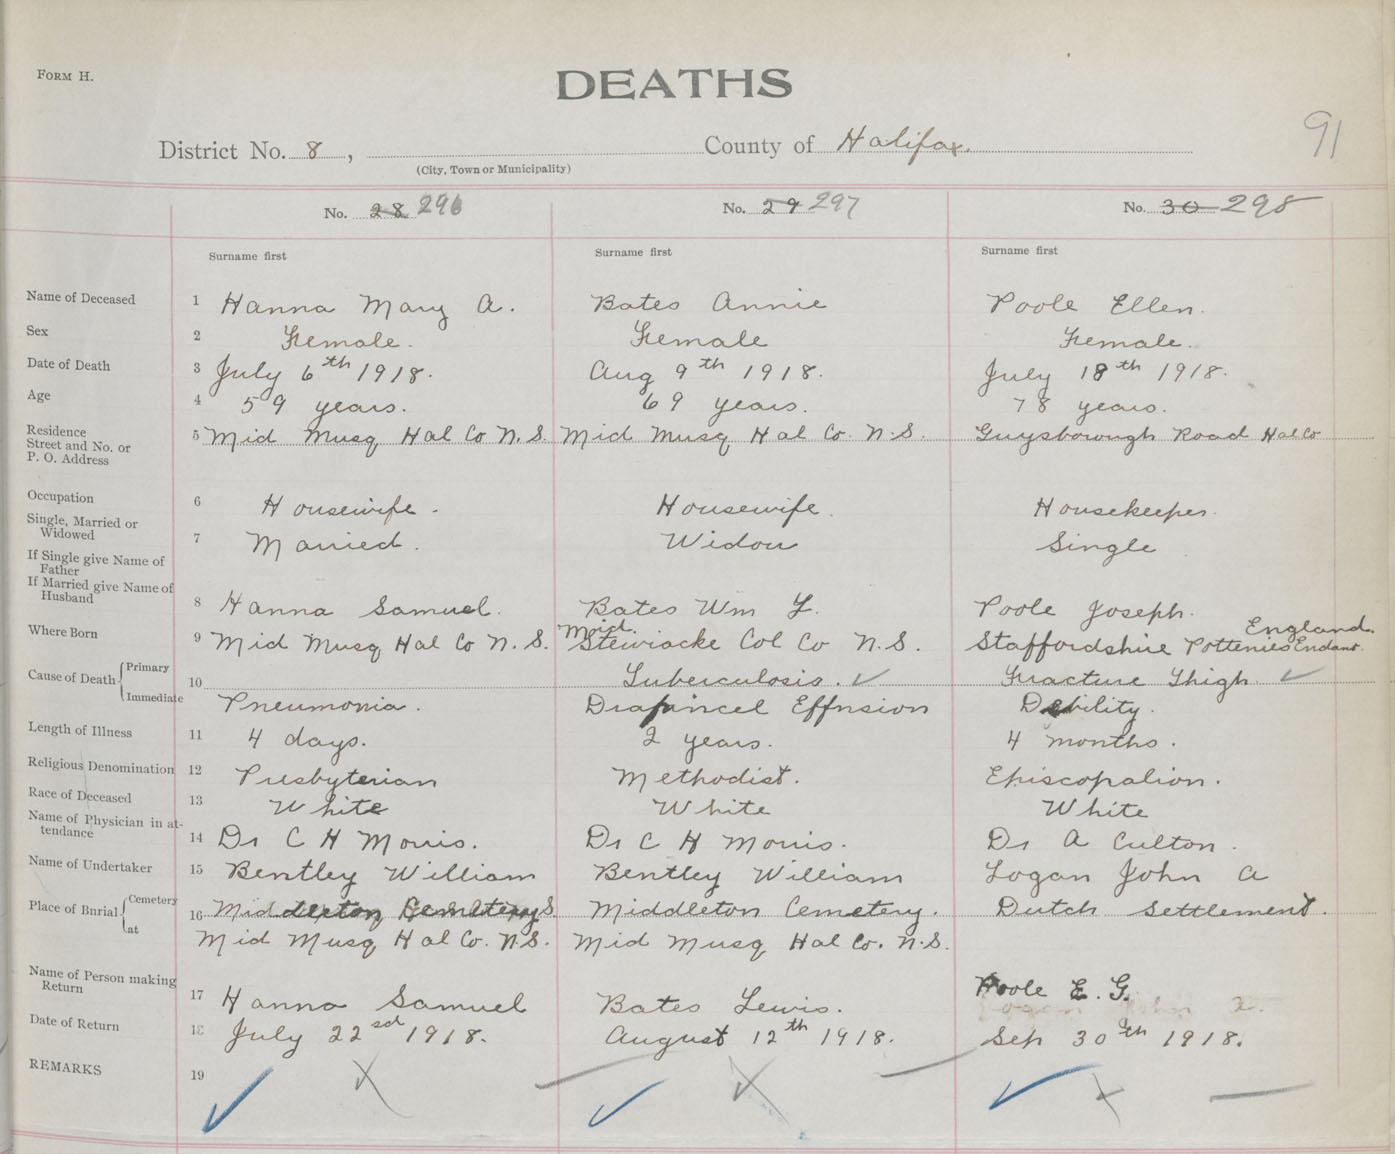 FORM H.
DEATHS
91
District No. 8, County of Halifax.
(City, Town or Municipality)
No. 28 296 No. 29 297 No. 30 298
Surname first Surname first Surname first
Name of Deceased 1 Hanna Mary A. Bates Annie Poole Ellen.
Sex 2 Female. Female Female.
Date of Death 3 July 6th 1918. Aug 9th 1918. July 18th 1918.
Age 4 59 years. 69 years. 78 years.
Residence
Street and No. or
P. O. Address
5 Mid Musq Hal Co N.S. Mid Musq Hal Co. N.S. Guysborough Road Hal Co
Occupation 6 Housewife. Housewife. Housekeeper.
Single, Married or
Widowed
7 Married. Widow Single
If Single give Name of
Father
If Married give Name of
Husband
8 Hanna Samuel. Bates Wm Y. Poole Joseph.
Where Born 9 Mid Musq Hal Co N.S. Mid Stewiacke Col Co N.S. Staffordshire Potteries England.
Cause of Death Primary 10 Tuberculosis. Fracture Thigh
Immediate Pneumonia. Effusion Debility.
Length of Illness 11 4 days. 2 years. 4 months.
Religious Denomination 12 Presbyterian Methodist. Episcopalion.
Race of Deceased 13 White White White
Name of Physician in at-
tendance
14 Dr C H Morris. Dr C H Morris. Dr A Culton.
Name of Undertaker 15 Bentley William Bentley William Logan John A
Place of Burial Cemetery 16 Middleton Cemetery Middleton Cemetery. Dutch Settlement.
at Mid Musq Hal Co. N.S. Mid Musq Hal Co. N.S.
Name of Person making
Return
17 Hanna Samuel Bates Lewis. Poole E. G.
Date of Return 18 July 22nd 1918. August 12th 1918. Sep 30th 1918.
REMARKS 19